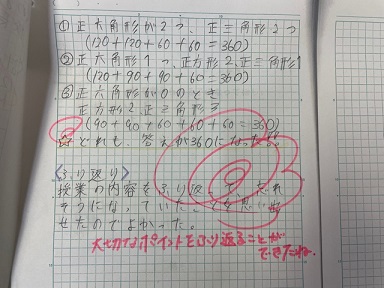 ①正六角形が2つ、正三角形2つ
(120+120+60+60=360)
②正六角形1つ、正方形2、正三角形1
(120+90+90+60=360)
③正六角形が0のとき
正方形2、正三角形3
(90+90+60+60+60=360)
☆どれも、答えが360になった。
〈ふり返り〉
授業の内容をふり返って、忘れ
そうになっていた
を思い出
せたのでよかった。
大切なポイントをふり返ることが
できたね。